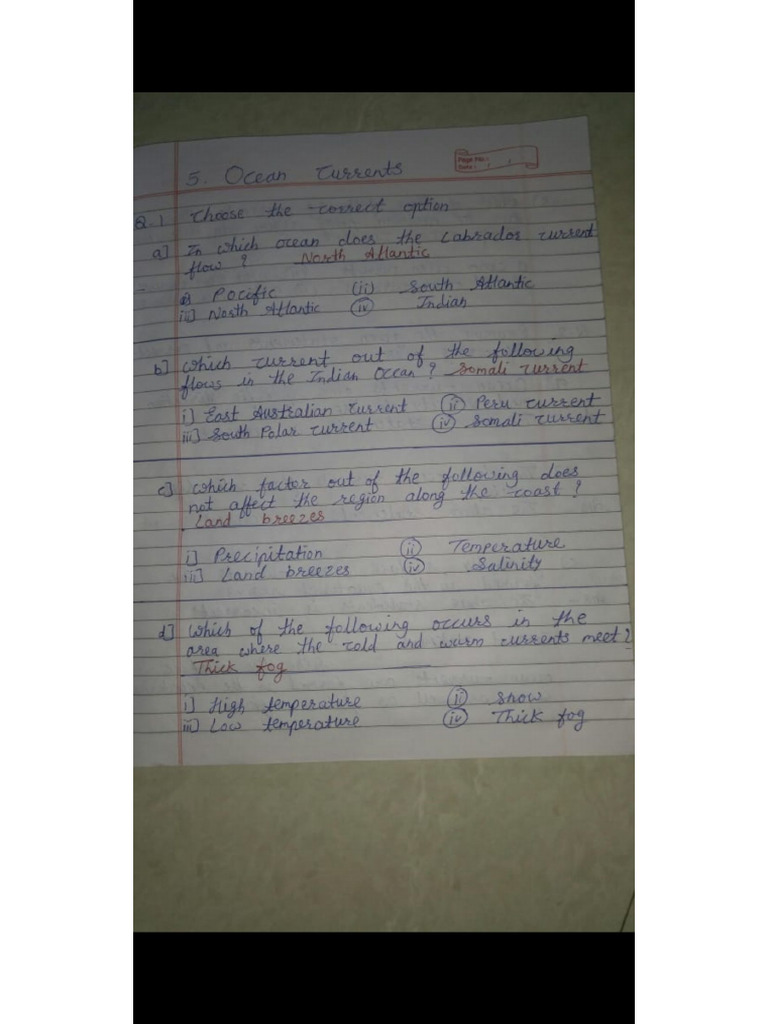 Page No.:
Date:
5. Ocean Currents
Q.1 Choose the correct option
a] In which ocean does the Labrador current
flow? North Atlantic
i) Pocific (ii) South Atlantic
iii] North Atlantic (iv) Indian
b] Which current out of the following
flows in the Indian Ocean? Somali current
i] East Australian current (ii) Peru current
iii] South Polar current (iv) Somali current
c] Which factor out of the following does
not affect the region along the coast?
Land breezes
i] Precipitation (ii) Temperature
iii] Land breezes (iv) Salinity
d] Which of the following occurs in the
area where the cold and warm currents meet?
Thick fog
i] High temperature (ii) Snow
iii] Low temperature (iv) Thick fog